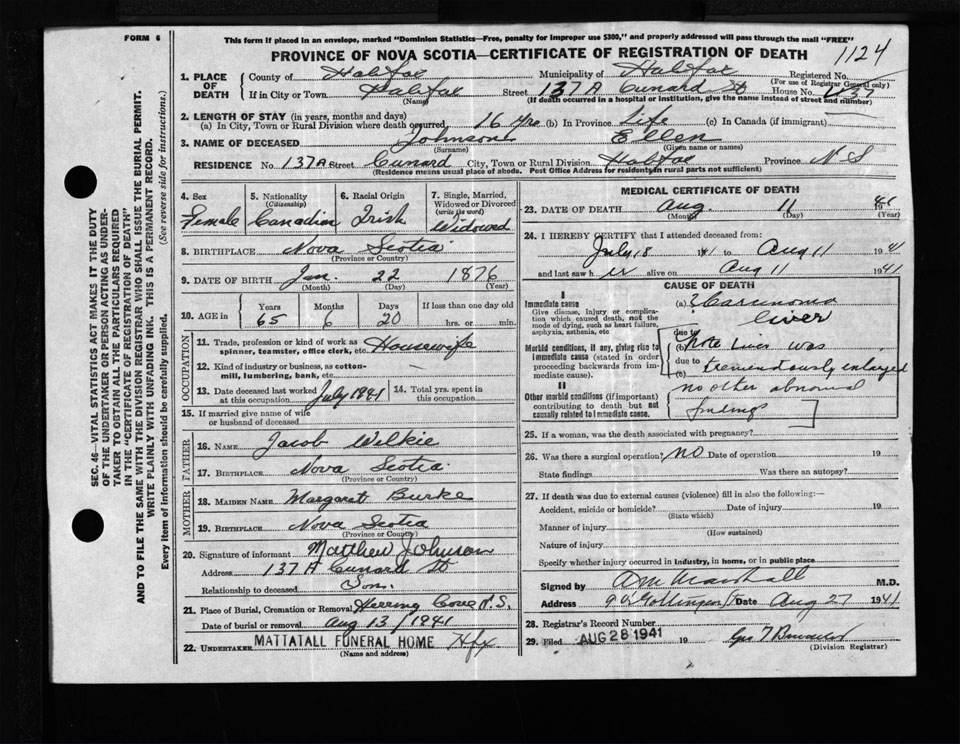 FORM 6
This form if placed in an envelope, marked "Dominion Statistics—Free, penalty for improper use $300," and properly addressed will pass through the mail "FREE"
PROVINCE OF NOVA SCOTIA—CERTIFICATE OF REGISTRATION OF DEATH
1124
1. PLACE OF DEATH
County of Halifax Municipality of Halifax Registered No.
(For use of Registrar General only)
If in City or Town Halifax Street 137 A Cunard St House No.
(Name) (If death occurred in a hospital or institution, give the name instead of street and number)
2. LENGTH OF STAY (in years, months and days)
(a) In City, Town or Rural Division where death occurred 16 yrs (b) In Province life (c) In Canada (if immigrant)
3. NAME OF DECEASED Johnson Ellen
(Surname) (Given name or names)
RESIDENCE No 137A Street Cunard City, Town or Rural Division Halifax Province N S
(Residence means usual place of abode. Post Office Address for residents in rural parts not sufficient)
4. Sex Female
5. Nationality (Citizenship) Canadian
6. Racial Origin Irish
7. Single, Married, Widowed or Divorced (write the word) Widowed
8. BIRTHPLACE Nova Scotia
(Province or Country)
9. DATE OF BIRTH Jan. 22 1876
(Month) (Day) (Year)
10. AGE in Years 65 Months 6 Days 20 If less than one day old hrs. or min.
OCCUPATION
11. Trade, profession or kind of work as spinner, teamster, office clerk, etc. Housewife
12. Kind of industry or business, as cotton-mill, lumbering, bank, etc. —
13. Date deceased last worked at this occupation July 1941
14. Total yrs. spent in this occupation
15. If married give name of wife or husband of deceased
FATHER
16. NAME Jacob Wilkie
17. BIRTHPLACE Nova Scotia
(Province or Country)
MOTHER
18. MAIDEN NAME Margaret Burke
19. BIRTHPLACE Nova Scotia
(Province or Country)
20. Signature of informant Matthew Johnson
Address 137 A Cunard St
Relationship to deceased Son
21. Place of Burial, Cremation or Removal Herring Cove N.S.
Date of burial or removal Aug 13/1941
22. UNDERTAKER MATTATALL FUNERAL HOME Hfx
(Name and address)
MEDICAL CERTIFICATE OF DEATH
23. DATE OF DEATH Aug. 11 41
(Month) (Day) (Year)
24. I HEREBY CERTIFY that I attended deceased from:
July 18 41 to Aug 11 1941
and last saw h er alive on Aug 11 1941
CAUSE OF DEATH
I
Immediate cause
Give disease, injury or complication which caused death, not the mode of dying, such as heart failure, asphyxia, asthenia, etc
(a) ? Carcinoma liver
Morbid conditions, if any, giving rise to immediate cause (stated in order proceeding backwards from immediate cause).
due to
(b) Note Liver was
due to
tremendously enlarged
II
Other morbid conditions (if important) contributing to death but not causally related to immediate cause.
no other abnormal
findings
25. If a woman, was the death associated with pregnancy?
26. Was there a surgical operation? no Date of operation 19
State findings Was there an autopsy?
27. If death was due to external causes (violence) fill in also the following:—
Accident, suicide or homicide? Date of injury 19
(State which)
Manner of injury
(How sustained)
Nature of injury
Specify whether injury occurred in industry, in home, or in public place
Signed by A M Marshall M.D.
Address Gottingen St Date Aug 27 1941
28. Registrar's Record Number
29. Filed AUG 28 1941 19
(Division Registrar)
SEC. 46—VITAL STATISTICS ACT MAKES IT THE DUTY
OF THE UNDERTAKER OR PERSON ACTING AS UNDER-
TAKER TO OBTAIN ALL THE PARTICULARS REQUIRED
IN THE "CERTIFICATE OF REGISTRATION OF DEATH"
AND TO FILE THE SAME WITH THE DIVISION REGISTRAR WHO SHALL ISSUE THE BURIAL PERMIT.
WRITE PLAINLY WITH UNFADING INK. THIS IS A PERMANENT RECORD.
Every item of information should be carefully supplied. (See reverse side for instructions.)